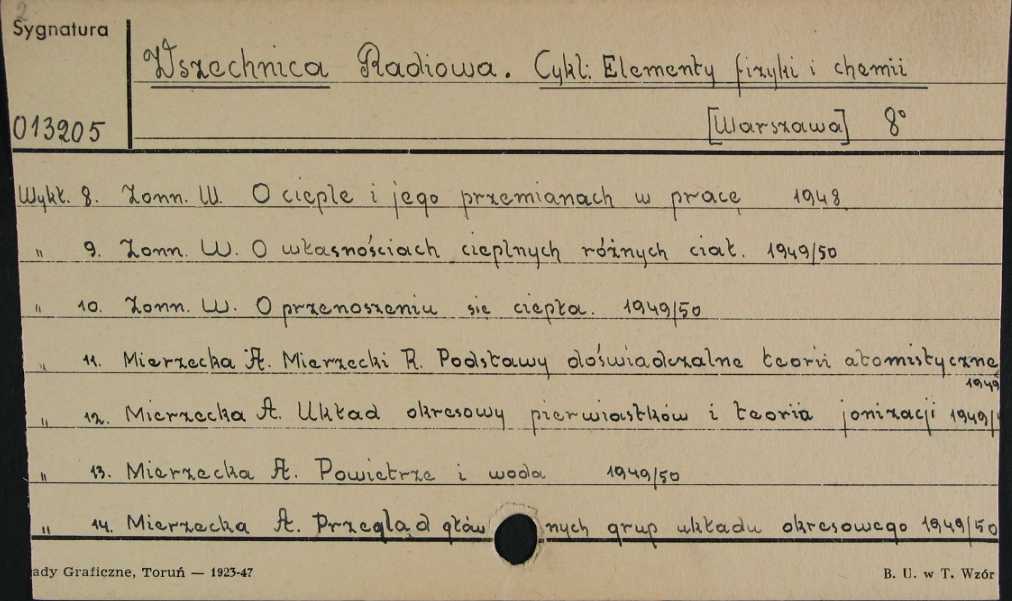 2
Sygnatura
Wszechnica Radiowa. Cykl: Elementy fizyki i chemii
013205
[Warszawa] 8°
Wykł. 8. Zonn. W. O cieple i jego przemianach w pracę 1948
" 9. Zonn. W. O własnościach cieplnych różnych ciał. 1949/50
" 10. Zonn. W. O przenoszeniu się ciepła. 1949/50
" 11. Mierzecka A. Mierzecki R. Podstawy doświadczalne teorii atomistycznej
1949
" 12. Mierzecka A. Układ okresowy pierwiastków i teoria jonizacji 1949/
" 13. Mierzecka A. Powietrze i woda 1949/50
" 14. Mierzecka A. Przegląd głównych grup układu okresowego 1949/50
ady Graficzne, Toruń — 1923-47 B. U. w T. Wzór